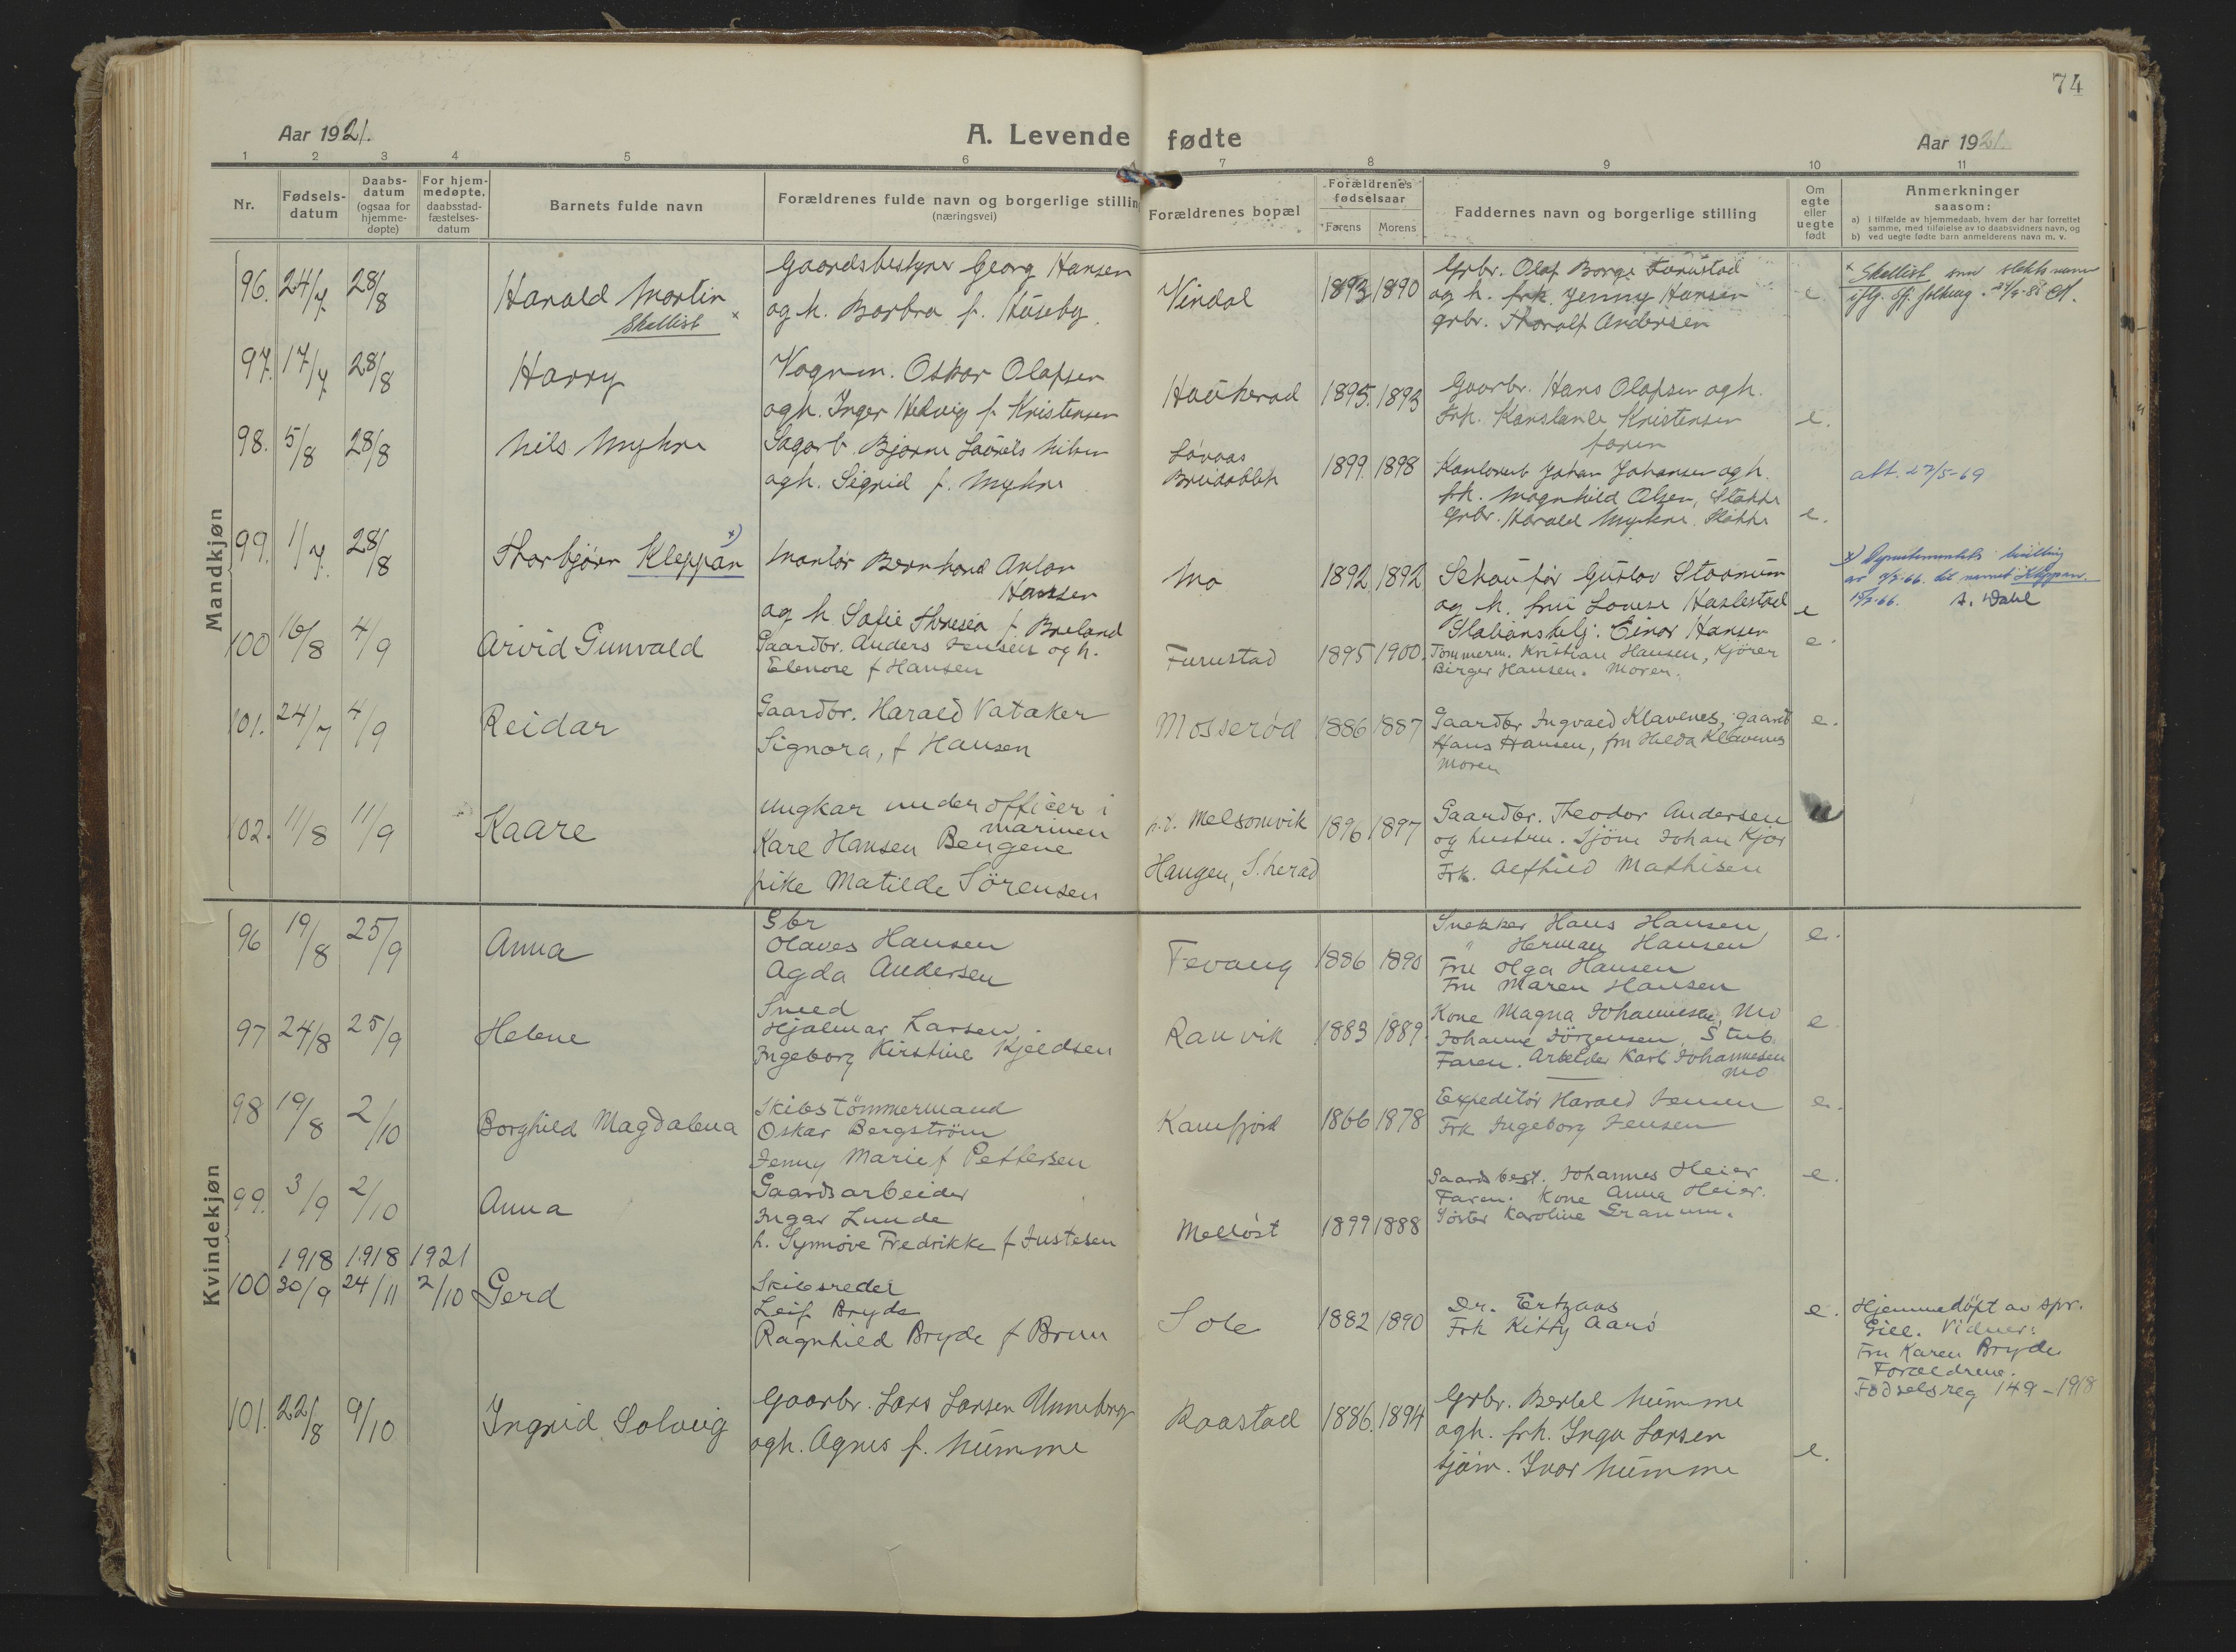 74
Aar 1921.
A. Levende fødte
Aar 1921.
1 2 3 4 5 6 7 8 9 10 11
Nr.
Fødsels-
datum
Daabs-
datum
(ogsaa for
hjemme-
døpte)
For hjem-
medøpte,
daabsstad-
fæstelses-
datum
Barnets fulde navn
Forældrenes fulde navn og borgerlige stilling
(næringsvei)
Forældrenes bopæl
Forældrenes
fødselsaar
Farens Morens
Faddernes navn og borgerlige stilling
Om
egte
eller
uegte
født
Anmerkninger
saasom:
a) i tilfælde av hjemmedaab, hvem der har forrettet
samme, med tilføielse av to daabsvidners navn, og
b) ved uegte fødte barn anmelderens navn m. v.
Mandkjøn
96. 24/7 28/8
Harald Martin
Skallist x
Gaardsbestyrer Georg Hansen
og h. Barbra f. Huseby
Vindal
1893 1890
Grbr. Olaf Borge Furustad
og h. frk. Jenny Hansen
grbr. Thoralf Andersen
e.
x Skallist som slektsnavn
97. 17/7 28/8
Harry
Vognm. Oskar Olafsen
og h. Inger Hedvig f. Kristensen
Haukerød
1895. 1893
Gaarbr. Hans Olafsen og h.
Frk. Konstanse Kristensen
faren
e.
98. 5/8 28/8
Nils Myhre
Sagarb. Bjarne Laurits Nilsen
og h. Sigrid f. Myhre
Løvaas
1899. 1898
Kontorarb Johan Johansen og h.
frk. Magnhild Olsen, Stokke
Grbr. Harald Myhre. Stokke
e.
att. 27/5-69
99. 1/7. 28/8
Thorbjørn Kleppan x)
Montør Bernhard Anton
Hansen
og h. Sofie Theresia f. Breland
Mo
1892 1892
Schaufør Gustav Staanum
og h. fru Lovise Haslestad
Stationsbetj. Einar Hansen
e
x) Departementets bevilling
av 9/5-66 til navnet Kleppan.
A. Dahl
100 16/8 4/9
Arvid Gunvald
Gaardbr. Anders Jensen og h.
Elenore f Hansen
Furustad
1895 1900.
Tømmerm. Kristian Hansen, Kjører
Birger Hansen. Moren.
e.
101. 24/7 4/9
Reidar
Gaardbr. Harald Vataker
Signora, f Hansen
Mosserød
1886 1887
Gaardbr Ingvald Klavenes, gaardb
Hans Hansen, fru Hilda Klavenes
Moren
e.
102. 11/8 11/9
Kaare
Ungkar underofficer i
marinen
Karl Hansen Bengene
pike Matilde Sörensen
p.t. Melsomvik
Haugen, S.herad
1896 1897
Gaardbr. Theodor Andersen
og hustru. Sjöm Johan Kjær
Frk. Alfhild Mathisen
u
Kvindekjøn
96 19/8 25/9
Anna
Gbr
Olaves Hansen
Agda Andersen
Fevang
1886 1890
Snekker Hans Hansen
" Herman Hansen
Fru Olga Hansen
Fru Maren Hansen
e.
97 24/8 25/9
Helene
Smed
Hjalmar Larsen.
Ingeborg Kirstine Kjeldsen
Ranvik
1883 1889.
Kone Magna Johannesen, Mo
Johanne Jörgensen, Stub.
Faren. Arbeider Karl Johannesen
Mo
e
98 19/8 2/10
Borghild Magdalena
Skibstömmermand
Oskar Bergström
Jenny Marie f Pettersen
Kamfjord
1866 1878
Expeditör Harald Jensen
Frk Ingeborg Jensen
e.
99. 3/9 2/10
Anna
Gaardsarbeider
Ingar Lunde
h. Synnøve Fredrikke f Justesen
Melløst
1899 1888
Gaardsbest. Johannes Heier
Faren. Kone Anna Heier.
Söster Karoline Granum.
e.
1918 1918 1921
100 30/9 24/11 2/10
Gerd
Skibsreder
Leif Bryde
Ragnhild Bryde f Brun
Sole
1882 1890
Dr. Ertzaas
Frk Kitty Aarö
e.
Hjemmedöpt av spr.
Gill. Vidner:
Fru Karen Bryde
Forældrene.
Födselsreg 149-1918
101. 22/8 9/10
Ingrid Solveig
Gaarbr. Lars Larsen Unneberg
og h. Agnes f. Numme
Raastad
1886. 1894
Grbr. Bertel Numme
og h. frk. Inga Larsen
sjøm. Ivar Numme
e.